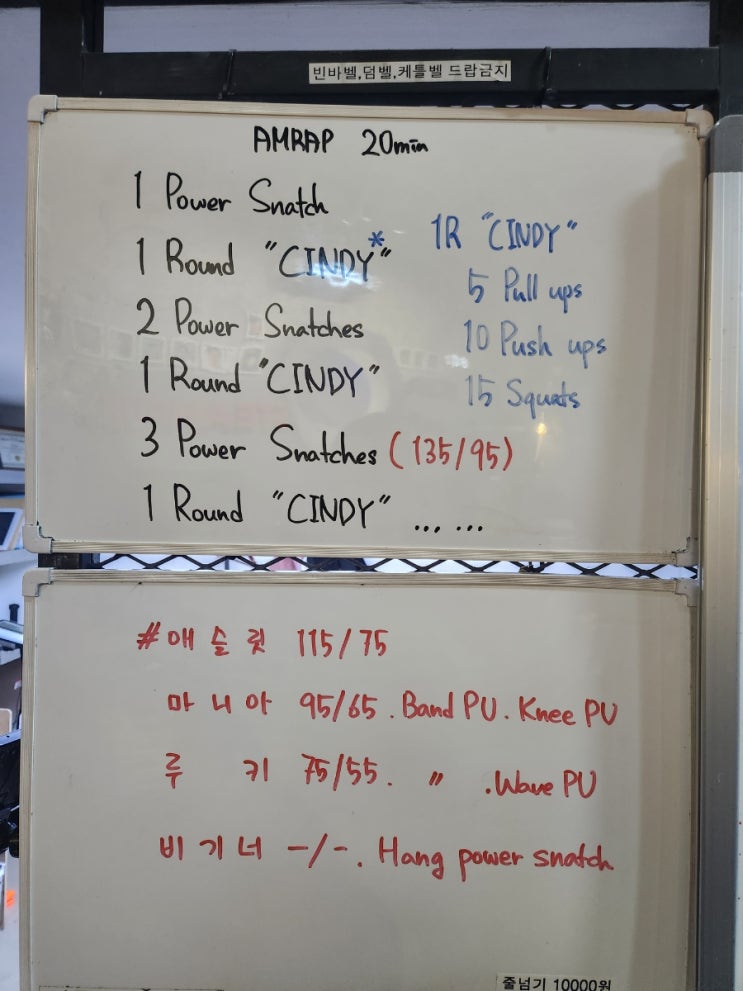 빈바벨,덤벨,케틀벨 드랍금지
AMRAP 20min
1 Power Snatch
1 Round "CINDY*"
2 Power Snatches
1 Round "CINDY"
3 Power Snatches (135/95)
1 Round "CINDY" ... ...
1R "CINDY"
5 Pull ups
10 Push ups
15 Squats
#애슬릿 115/75
마니아 95/65. Band PU. Knee PU
루키 75/55. " . Wave PU
비기너 -/-. Hang power snatch
줄넘기 10000원